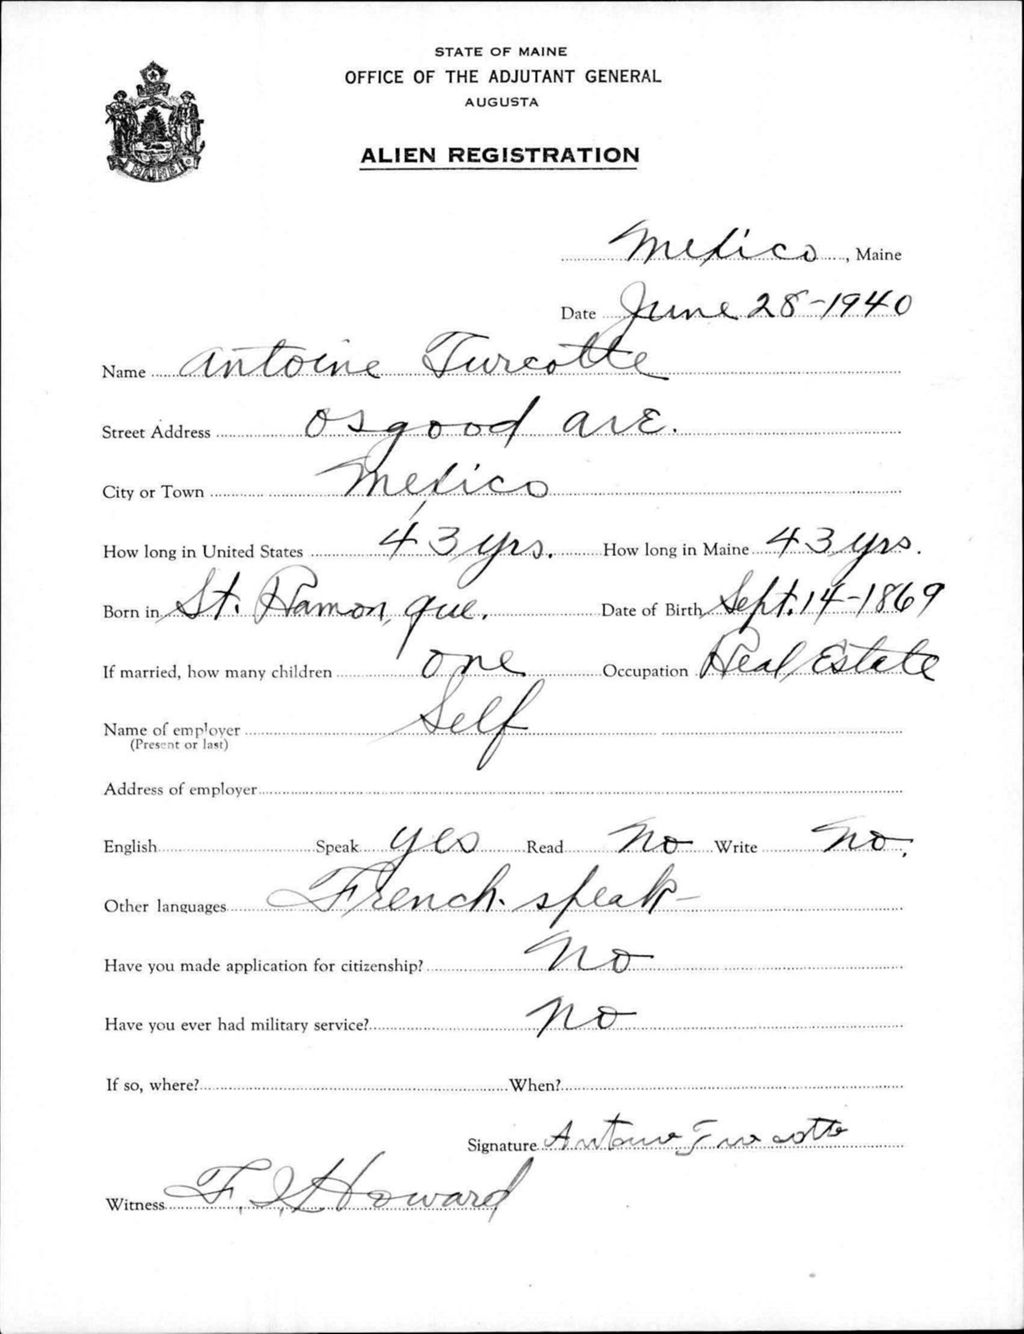 STATE OF MAINE
OFFICE OF THE ADJUTANT GENERAL
AUGUSTA
ALIEN REGISTRATION
Mexico, Maine
Date June 28-1940
Name Antoine Turcotte
Street Address Osgood Ave.
City or Town Mexico
How long in United States 43 yrs. How long in Maine 43 yrs.
Born in St. Ramon, Que. Date of Birth Sept. 14-1869
If married, how many children one Occupation Real Estate
Name of employer Self
(Present or last)
Address of employer
English Speak yes Read No Write No.
Other languages French. speak-
Have you made application for citizenship? No
Have you ever had military service? No
If so, where? When?
Signature Antoine Turcotte
Witness F. J. Howard